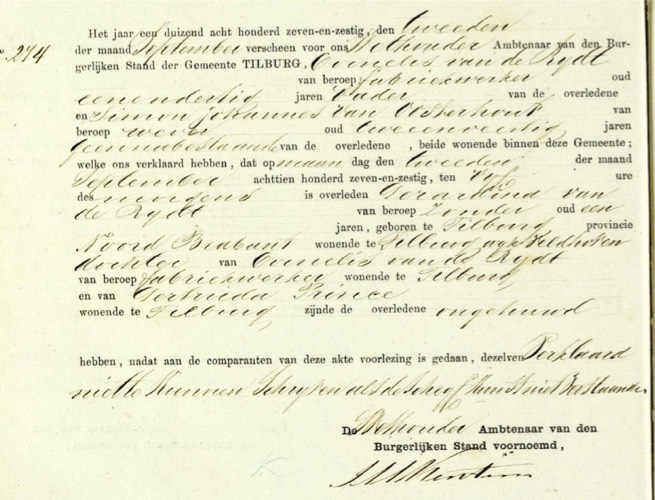 Het jaar een duizend acht honderd zeven-en-zestig, den tweeden
N° 274 der maand September verscheen voor ons Wethouder Ambtenaar van den Bur-
gerlijken Stand der Gemeente TILBURG, Cornelis van de Rydt
van beroep fabriekwerker oud
eenendertig jaren Vader van de overledene
en Simon Johannes van Oosterhout van
beroep wever oud tweeenveertig jaren
geen nabestaande van de overledene, beide wonende binnen deze Gemeente;
welke ons verklaard hebben, dat op maan dag den tweeden der maand
September achttien honderd zeven-en-zestig, ten vyf ure
des morgens is overleden Gerardina van
de Rydt van beroep Zonder oud een
jaren, geboren te Tilburg provincie
Noord Brabant wonende te Tilburg wyk Veldhoven
dochter van Cornelis van de Rydt
van beroep fabriekwerker wonende te Tilburg
en van Gertruda Prince
wonende te Tilburg zijnde de overledene ongehuwd
hebben, nadat aan de comparanten van deze akte voorlezing is gedaan, dezelven Verklaard
niet te Kunnen Schryven als de
De Wethouder Ambtenaar van den
Burgerlijken Stand voornoemd,